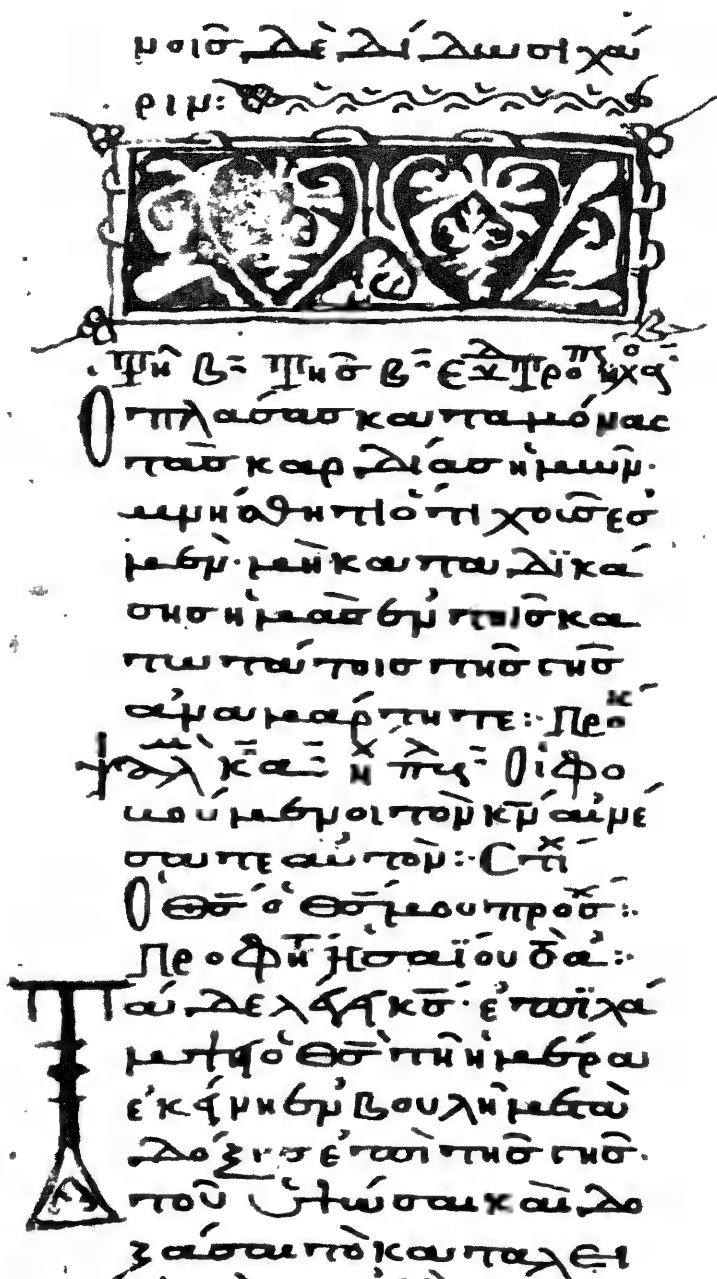 μοισ δὲ δίδωσι χά
ριν:
Τῆ β̄ τῆσ β̄
Ὁ πλάσασ καταμόνας
τὰσ καρδίασ ἡμῶν·
μνήσθητι ὅτι χοῦσ ἐσ
μέν· μὴ καταδϊκά
σησ ἡμᾶσ ἐν τοῖσ κα
τωτάτοισ τῆσ γῆσ
ἀναμάρτητε: Προκ
ψαλ κ̄α Οἱ φο
βούμενοι τὸν κ̄ν αἰνέ
σατε αὐτὸν: Στίχ
Ὁ θ̄σ ὁ θ̄σ μου πρόσχ:
Προφητ Ἡσαΐου
Τάδε λέγει κ̄σ· ἐπϊλά
μψει ὁ θ̄σ τῆ ἡμέρα
ἐκείνη ἐν βουλῆ μετὰ
δόξησ ἐπὶ τῆσ γῆσ·
τοῦ ὑψῶσαι καὶ δο
ξάσαι τὸ καταλει